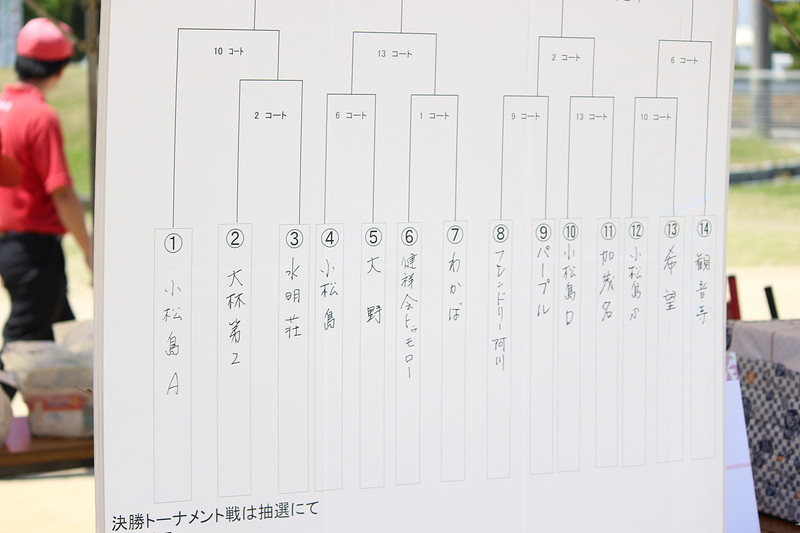 10 コート
13 コート
2 コート
6 コート
2 コート
6 コート
1 コート
9 コート
13 コート
10 コート
① 小松島A
② 大林第2
③ 水明荘
④ 小松島
⑤ 大野
⑥ 健祥会トゥモロー
⑦ わかば
⑧ フレンドリー阿川
⑨ パープル
⑩ 小松島D
⑪ 加茂名
⑫ 小松島
⑬ 希望
⑭ 観音寺
決勝トーナメント戦は抽選にて